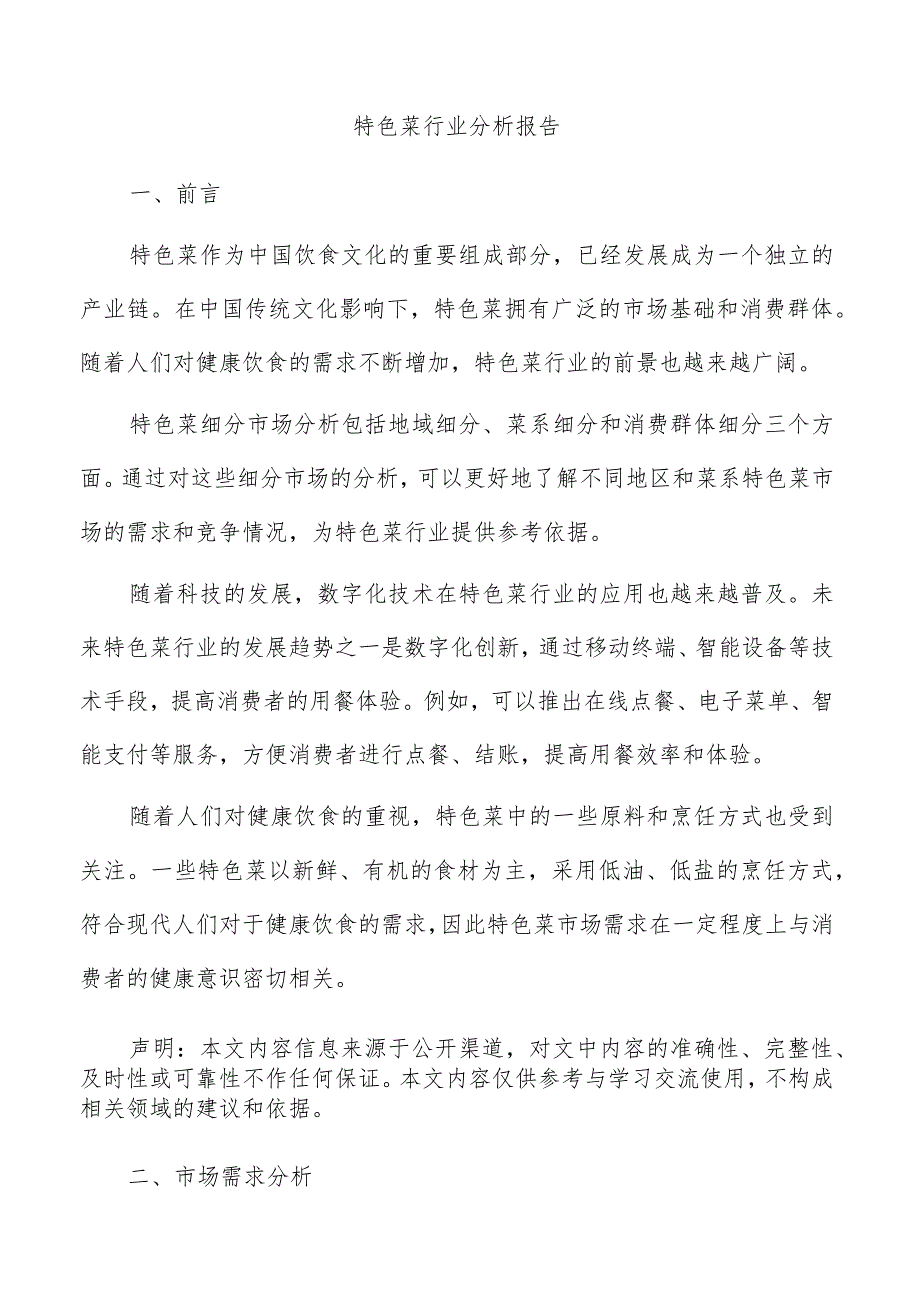 特色菜行业分析报告
一、前言
特色菜作为中国饮食文化的重要组成部分，已经发展成为一个独立的
产业链。在中国传统文化影响下，特色菜拥有广泛的市场基础和消费群体。
随着人们对健康饮食的需求不断增加，特色菜行业的前景也越来越广阔。
特色菜细分市场分析包括地域细分、菜系细分和消费群体细分三个方
面。通过对这些细分市场的分析，可以更好地了解不同地区和菜系特色菜市
场的需求和竞争情况，为特色菜行业提供参考依据。
随着科技的发展，数字化技术在特色菜行业的应用也越来越普及。未
来特色菜行业的发展趋势之一是数字化创新，通过移动终端、智能设备等技
术手段，提高消费者的用餐体验。例如，可以推出在线点餐、电子菜单、智
能支付等服务，方便消费者进行点餐、结账，提高用餐效率和体验。
随着人们对健康饮食的重视，特色菜中的一些原料和烹饪方式也受到
关注。一些特色菜以新鲜、有机的食材为主，采用低油、低盐的烹饪方式，
符合现代人们对于健康饮食的需求，因此特色菜市场需求在一定程度上与消
费者的健康意识密切相关。
声明：本文内容信息来源于公开渠道，对文中内容的准确性、完整性、
及时性或可靠性不作任何保证。本文内容仅供参考与学习交流使用，不构成
相关领域的建议和依据。
二、市场需求分析